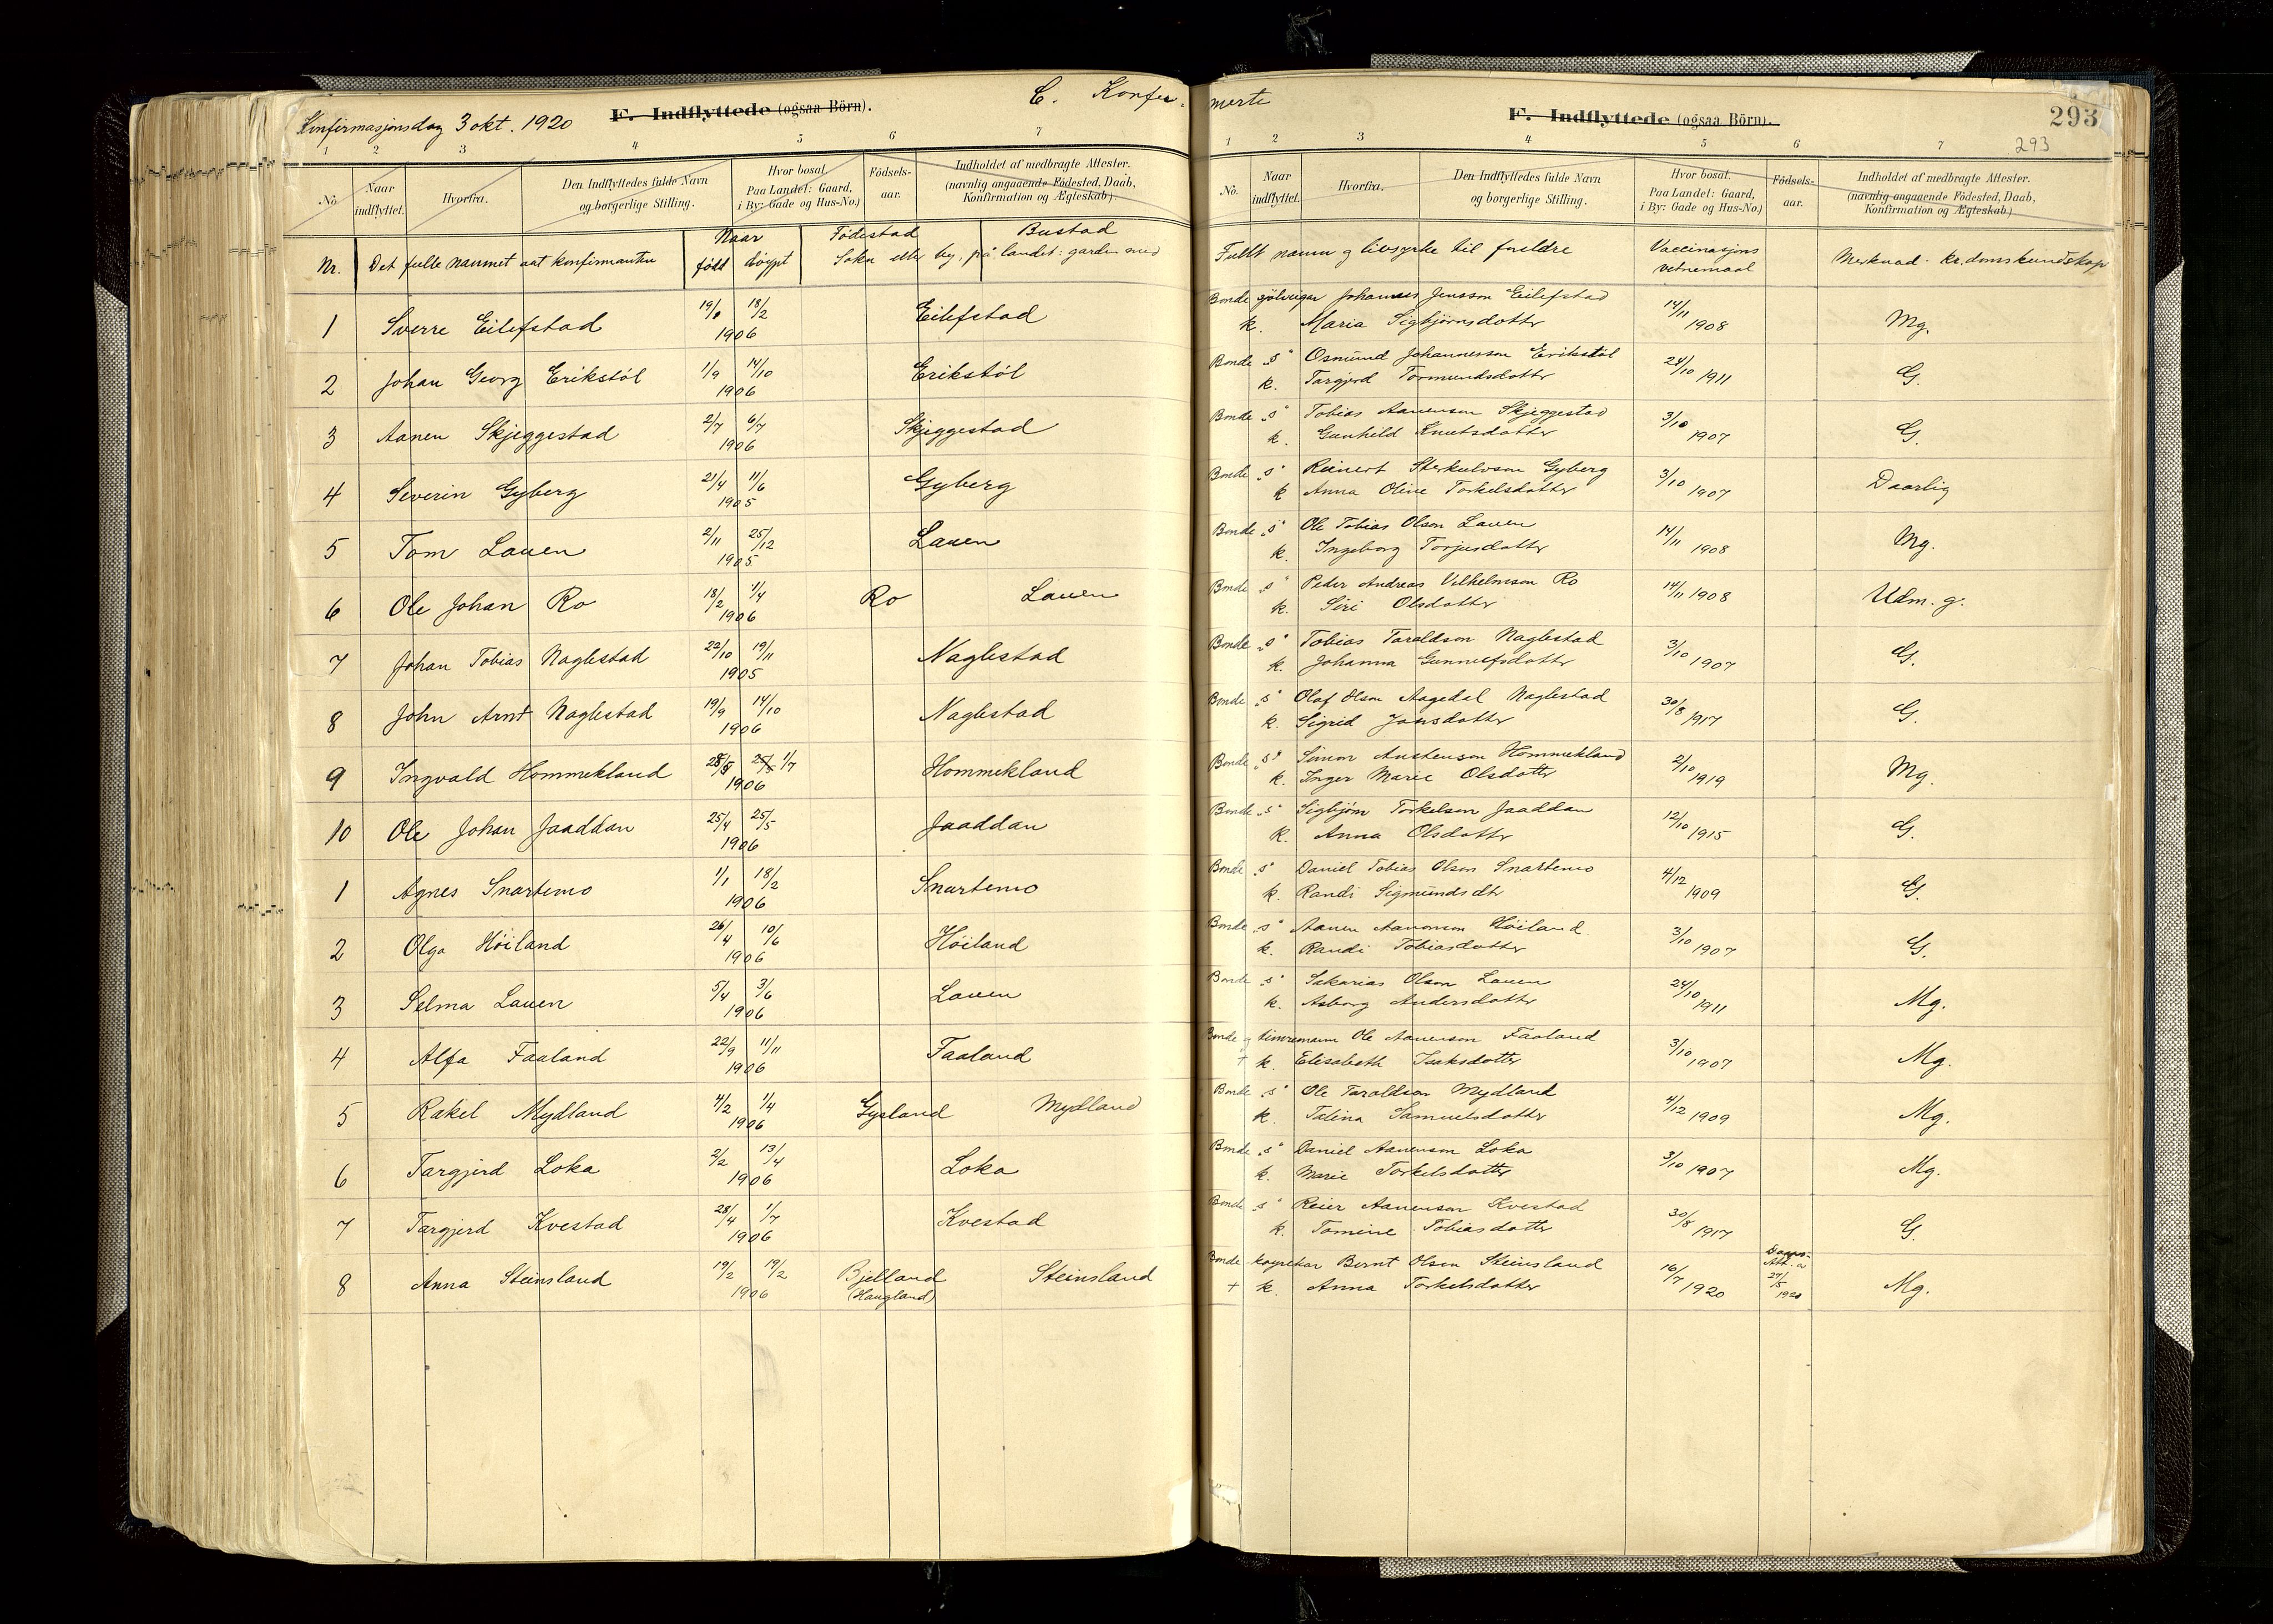 C. Konfir-
Konfirmasjonsdag 3 okt. 1920
F. Indflyttede (ogsaa Börn).
1 2 3 4 5 6 7
No.
Naar indflyttet.
Hvorfra.
Den Indflyttedes fulde Navn og borgerlige Stilling.
Hvor bosat. Paa Landet: Gaard, i By: Gade og Hus-No.)
Födsels-aar.
Indholdet af medbragte Attester. (navnlig angaaende Födested, Daab, Konfirmation og Ægteskab).
Nr. Det fulle namnet aat konfirmanten Naar født døypt Fødestad Bustad
Sokn eller by, på landet: garden med
1 Sverre Eilefstad 18/2 1906 Eilefstad
2 Johan Georg Erikstøl 1/9 14/10 1906 Erikstøl
3 Aanen Skjeggestad 2/7 6/7 1906 Skjeggestad
4 Severin Gyberg 21/4 11/6 1905 Gyberg
5 Tom Lauen 2/11 25/12 1905 Lauen
6 Ole Johan Ro 18/2 1/4 1906 Ro Lauen
7 Johan Tobias Naglestad 22/10 19/11 1905 Naglestad
8 John Arnt Naglestad 19/9 14/10 1906 Naglestad
9 Ingvald Hommekland 28/5 25/5 1/7 1906 Hommekland
10 Ole Johan Jaaddan 25/4 25/5 1906 Jaaddan
1 Agnes Snartemo 1/1 18/2 1906 Snartemo
2 Olga Høiland 26/4 10/6 1906 Høiland
3 Selma Lauen 5/4 3/6 1906 Lauen
4 Alfa Faaland 22/9 11/11 1906 Faaland
5 Rakel Mydland 4/2 1/4 1906 Gysland Mydland
6 Targjerd Loka 2/2 13/4 1906 Loka
7 Targjerd Kvestad 28/4 1/7 1906 Kvestad
8 Anna Steinsland 19/2 19/2 1906 Bjelland (Haugland) Steinsland
merte
F. Indflyttede (ogsaa Börn).
293
293
1 2 3 4 5 6 7
No.
Naar indflyttet.
Hvorfra.
Den Indflyttedes fulde Navn og borgerlige Stilling.
Hvor bosat. Paa Landet: Gaard, i By: Gade og Hus-No.)
Födsels-aar.
Indholdet af medbragte Attester. (navnlig angaaende Födested, Daab, Konfirmation og Ægteskab)
Fullt namn og livsyrke til foreldre Vaccinasjons vitnemaal Merknad. kr.domskundskap
Bonde sjølveigar Johannes Jensson Eilefstad
k. Maria Sigbjørnsdotter 14/11 1908 Mg.
Bonde "s" Osmund Johannesson Erikstøl
k. Targjerd Tormundsdotter 24/10 1911 G.
Bonde "s" Tobias Aanenson Skjeggestad
k. Gunhild Knutsdotter 3/10 1907 G.
Bonde "s" Reinert Sterkulvson Gyberg
k Anna Oline Torkelsdotter 3/10 1907 Daarlig
Bonde "s" Ole Tobias Olson Lauen
k. Ingeborg Torjusdotter 14/11 1908 Mg.
Bonde "s" Peder Andreas Vilhelmson Ro
k. Siri Olsdotter 14/11 1908 Udm. g.
Bonde "s" Tobias Taraldson Naglestad
k. Johanna Gunnulfsdotter 3/10 1907 G.
Bonde "s" Olaf Olson Aagedal Naglestad
k. Sigrid Jonsdotter 30/8 1917 G.
Bonde "s" Simon Austenson Hommekland
k. Inger Marie Olsdotter 2/10 1919 Mg.
Bonde "s" Sigbjørn Torkelson Jaaddan
k. Anna Olsdotter 12/10 1915 G.
Bonde "s" Daniel Tobias Olson Snartemo
k. Randi Sigmundsdtr 4/12 1909 G.
Bonde "s" Aanen Aanonson Høiland
k. Randi Tobiasdotter 3/10 1907 G.
Bonde "s" Sakarias Olson Lauen
k. Asborg Andersdotter 24/10 1911 Mg.
Bonde og timremann Ole Aanenson Faaland
+ k. Elisabeth Isaksdotter 3/10 1907 Mg.
Bonde "s" Ole Taraldson Mydland
k. Talina Samuelsdotter 4/12 1909 Mg.
Bonde "s" Daniel Aanenson Loka
k. Marie Torkelsdotter 3/10 1907 Mg.
Bonde "s" Reier Aanenson Kvestad
k. Tomine Tobiasdotter 30/8 1917 G.
Bonde Bernt Olson Steinsland
+ k. Anna Torkelsdotter 16/7 1920 Att. a 27/5 1920 Mg.